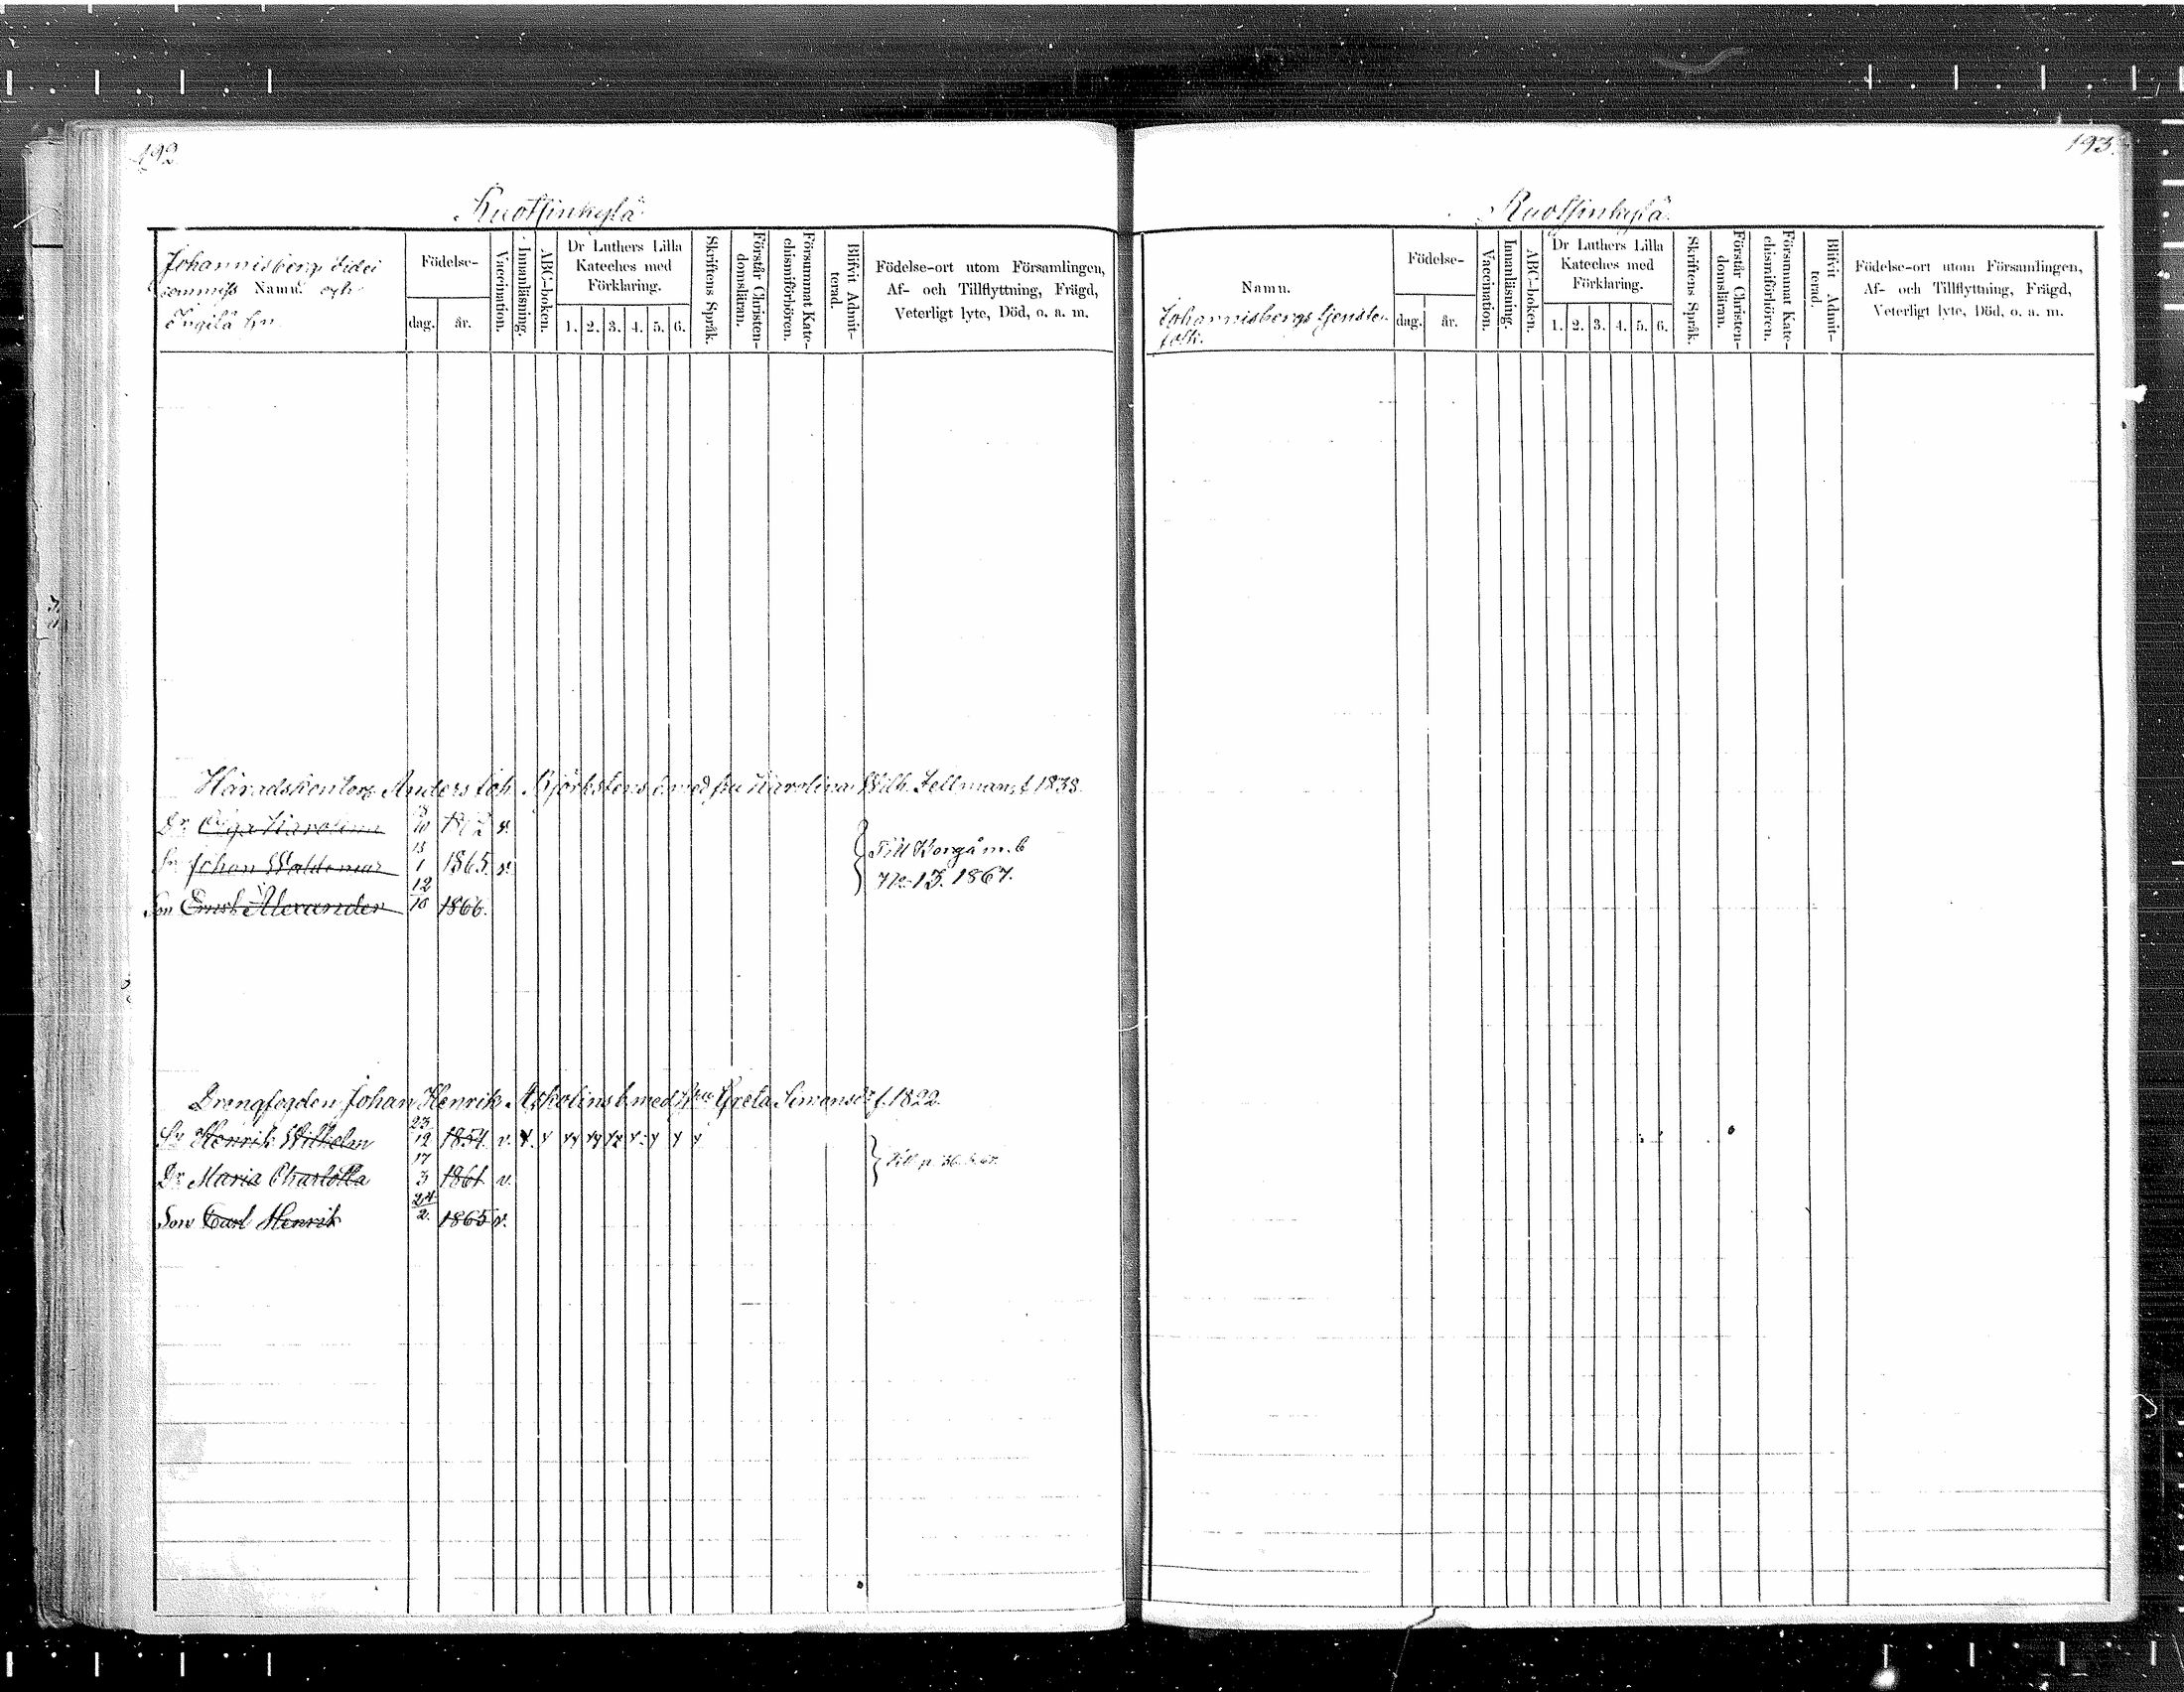 192
Ruotsinkylä
Johannisberg fidei
commiss Namn. och
Ingilä hn
Födelse-
dag. år.
Vaccination.
Innanläsning.
ABC-boken.
Dr Luthers Lilla
Kateches med
Förklaring.
1. 2. 3. 4. 5. 6.
Skriftens Språk.
Förstår Christen-
domsläran.
Försummat Kate-
chismiförhören.
Blifvit Admit-
terad.
Födelse-ort utom Församlingen,
Af- och Tillflyttning, Frägd,
Veterligt lyte, Död, o. a. m.
Häradskontors Anders Joh. Björkstens b. med hu Karolina Wilh. Fellman f. 1838.
Dr Olga Karolina 10 v.
Sn Johan Waldemar 13/1 1865 v.
Son Ernst Alexander 12/10 1866.
Till Borgå m. b
No 13. 1867.
Drengfogden Johan Henrik Askolins b. med hu Greta Simonsdr f. 1822.
Sn Henrik Wilhelm 23/12 1854 v.
Dr Maria Charlotta 17/3 1861 v.
Son Carl Henrik 24/2. 1865 v.
Till p.
193.
Ruotsinkylä
Namn.
Johannisbergs tjenste-
folk.
Födelse-
dag. år.
Vaccination.
Innanläsning.
ABC-boken.
Dr Luthers Lilla
Kateches med
Förklaring.
1. 2. 3. 4. 5. 6.
Skriftens Språk.
Förstår Christen-
domsläran.
Försummat Kate-
chismiförhören.
Blifvit Admit-
terad.
Födelse-ort utom Församlingen,
Af- och Tillflyttning, Frägd,
Veterligt lyte, Död, o. a. m.